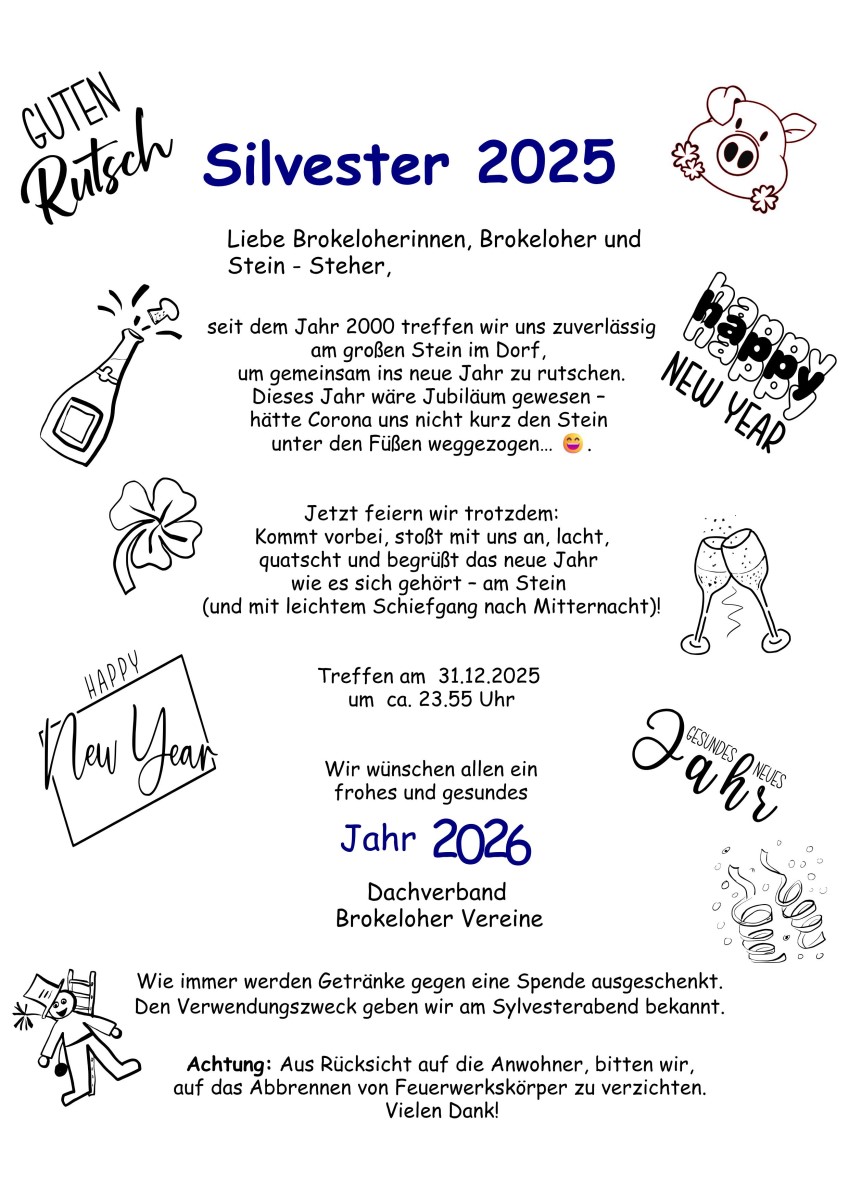 GUTEN
Rutsch
Silvester 2025
Liebe Brokeloherinnen, Brokeloher und
Stein - Steher,
seit dem Jahr 2000 treffen wir uns zuverlässig
am großen Stein im Dorf,
um gemeinsam ins neue Jahr zu rutschen.
Dieses Jahr wäre Jubiläum gewesen –
hätte Corona uns nicht kurz den Stein
unter den Füßen weggezogen… 😄 .
happy
happy
happy
NEW YEAR
Jetzt feiern wir trotzdem:
Kommt vorbei, stoßt mit uns an, lacht,
quatscht und begrüßt das neue Jahr
wie es sich gehört – am Stein
(und mit leichtem Schiefgang nach Mitternacht)!
HAPPY
New Year
Treffen am  31.12.2025
um  ca. 23.55 Uhr
GESUNDES
NEUES
Jahr
Wir wünschen allen ein
frohes und gesundes
Jahr 2026
Dachverband
Brokeloher Vereine
Wie immer werden Getränke gegen eine Spende ausgeschenkt.
Den Verwendungszweck geben wir am Sylvesterabend bekannt.
Achtung: Aus Rücksicht auf die Anwohner, bitten wir,
auf das Abbrennen von Feuerwerkskörper zu verzichten.
Vielen Dank!